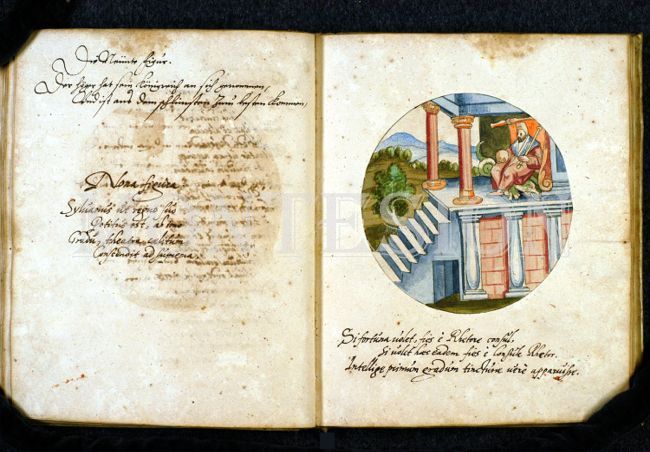 Die Neünte figúr.
Der Jäger hat sein Königreich an sich genommen,
Und ist aus dem schlimsten zum besten kommen,
Nona figura
Syluanus ut regno suo
Potitus est, ab imo
Gradu, theatri
Conscendit ad suprema.
Si fortuna uolet, fies è Rhetore consul,
Si uolet haec eadem fies è Consule Rhetor.
Intellige primum gradum tincturae uerè apparuisse.